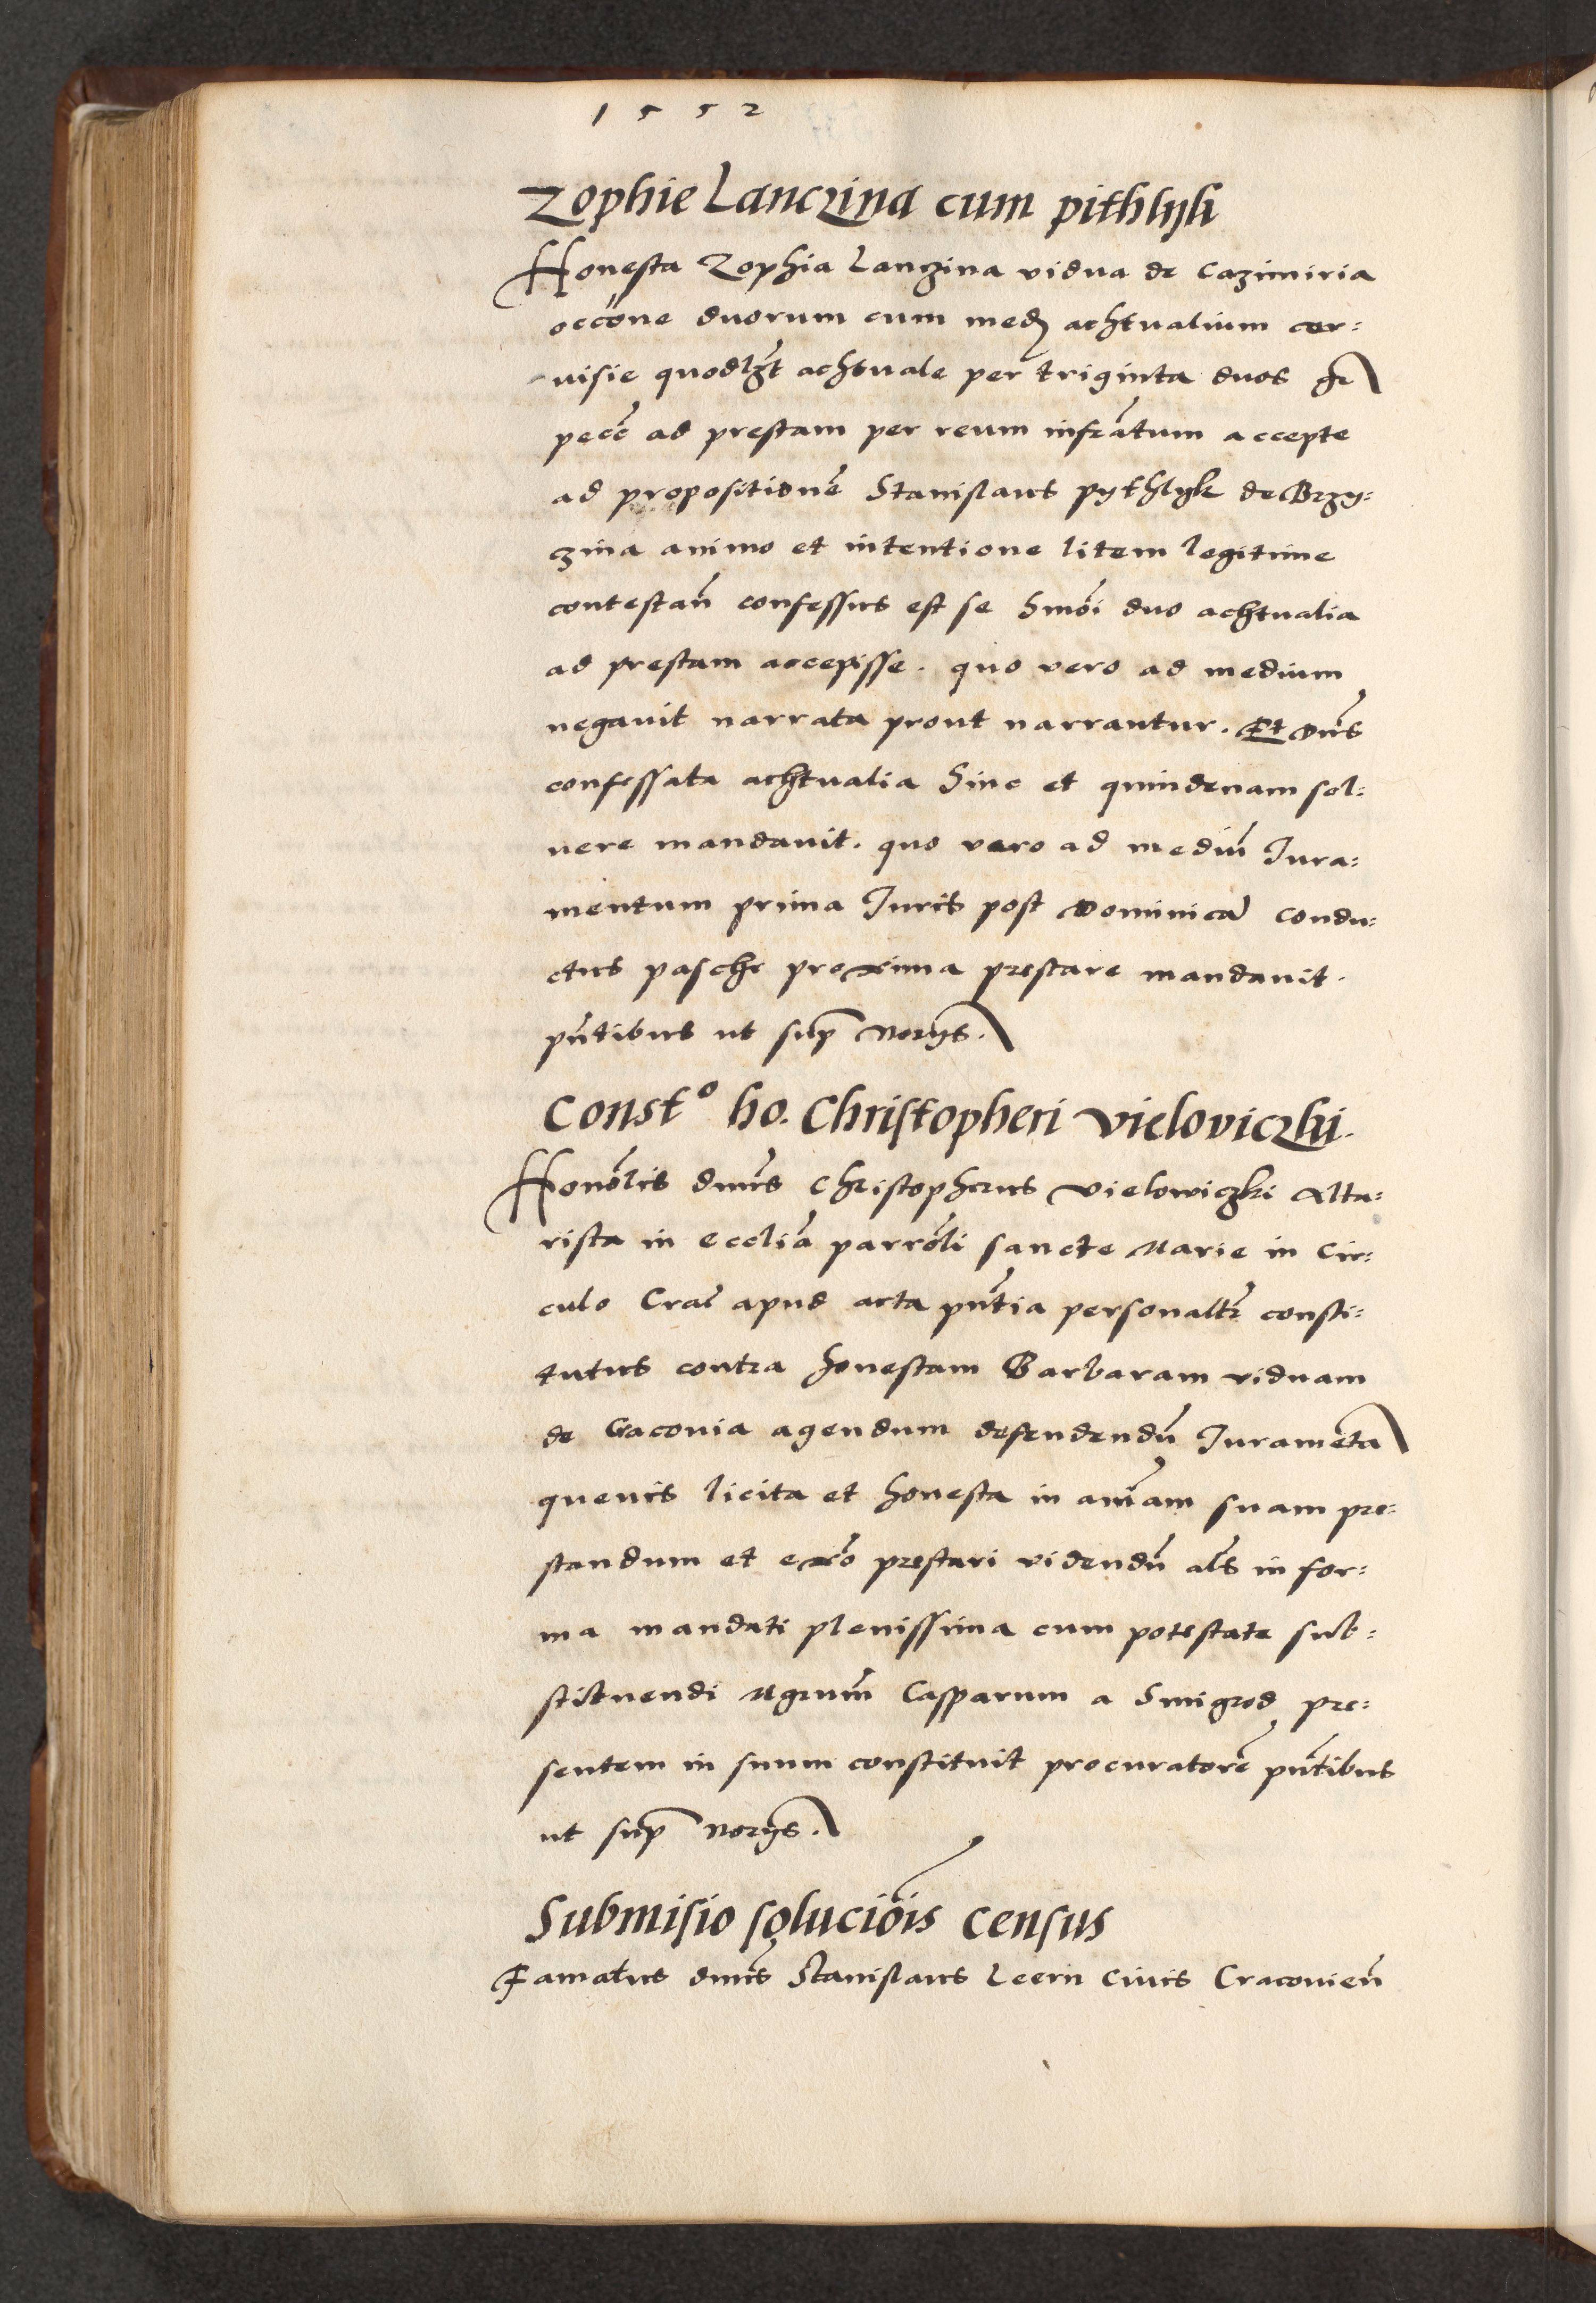 1552
Zophie Lanczina cum pithlyk
Honesta Zophia Lanczina vidua de Cazimiria
occone duorum cum med achtualium cer:
visie quodlzt achtuale per triginta duos gr
pecc ad prestam per reum infratum accepte
ad propositione Stanislaus pythlyk de Brzy:
zina animo et intentione litem legitime
contestan confessus est se hmoi duo achtualia
ad prestam accepisse. quo vero ad medium
negavit narrata prout narrantur. Et Dns
confessata achtualia hinc et quindenam sol:
vere mandavit. quo vero ad mediu Jura:
mentum prima Juris post Dominica Condu:
ctus pasche proxima prestare mandavit.
pntibus ut sup Norys.
Const⁰ ho. Christopheri Vieloviczki.
Honoblis dnus Christopherus Vielowiczki Alta:
rista in ecclia parroli sancte Marie in Cir:
culo Crac apud acta pntia personaltr consti:
tutus contra honestam Barbaram viduam
de Cracovia agendum defendendu Juramenta
quevis licita et honesta in aniam suam pre:
standum et exo prestari videndu als in for:
ma mandati plenissima cum potestate sub:
stituendi Mgrum Casparum a Smigrod pre:
sentem in suum constituit procuratore pntibus
ut sup Norys.
Submisio soluciois census
Famatus dnus Stanislaus Leern Civis Cracovien